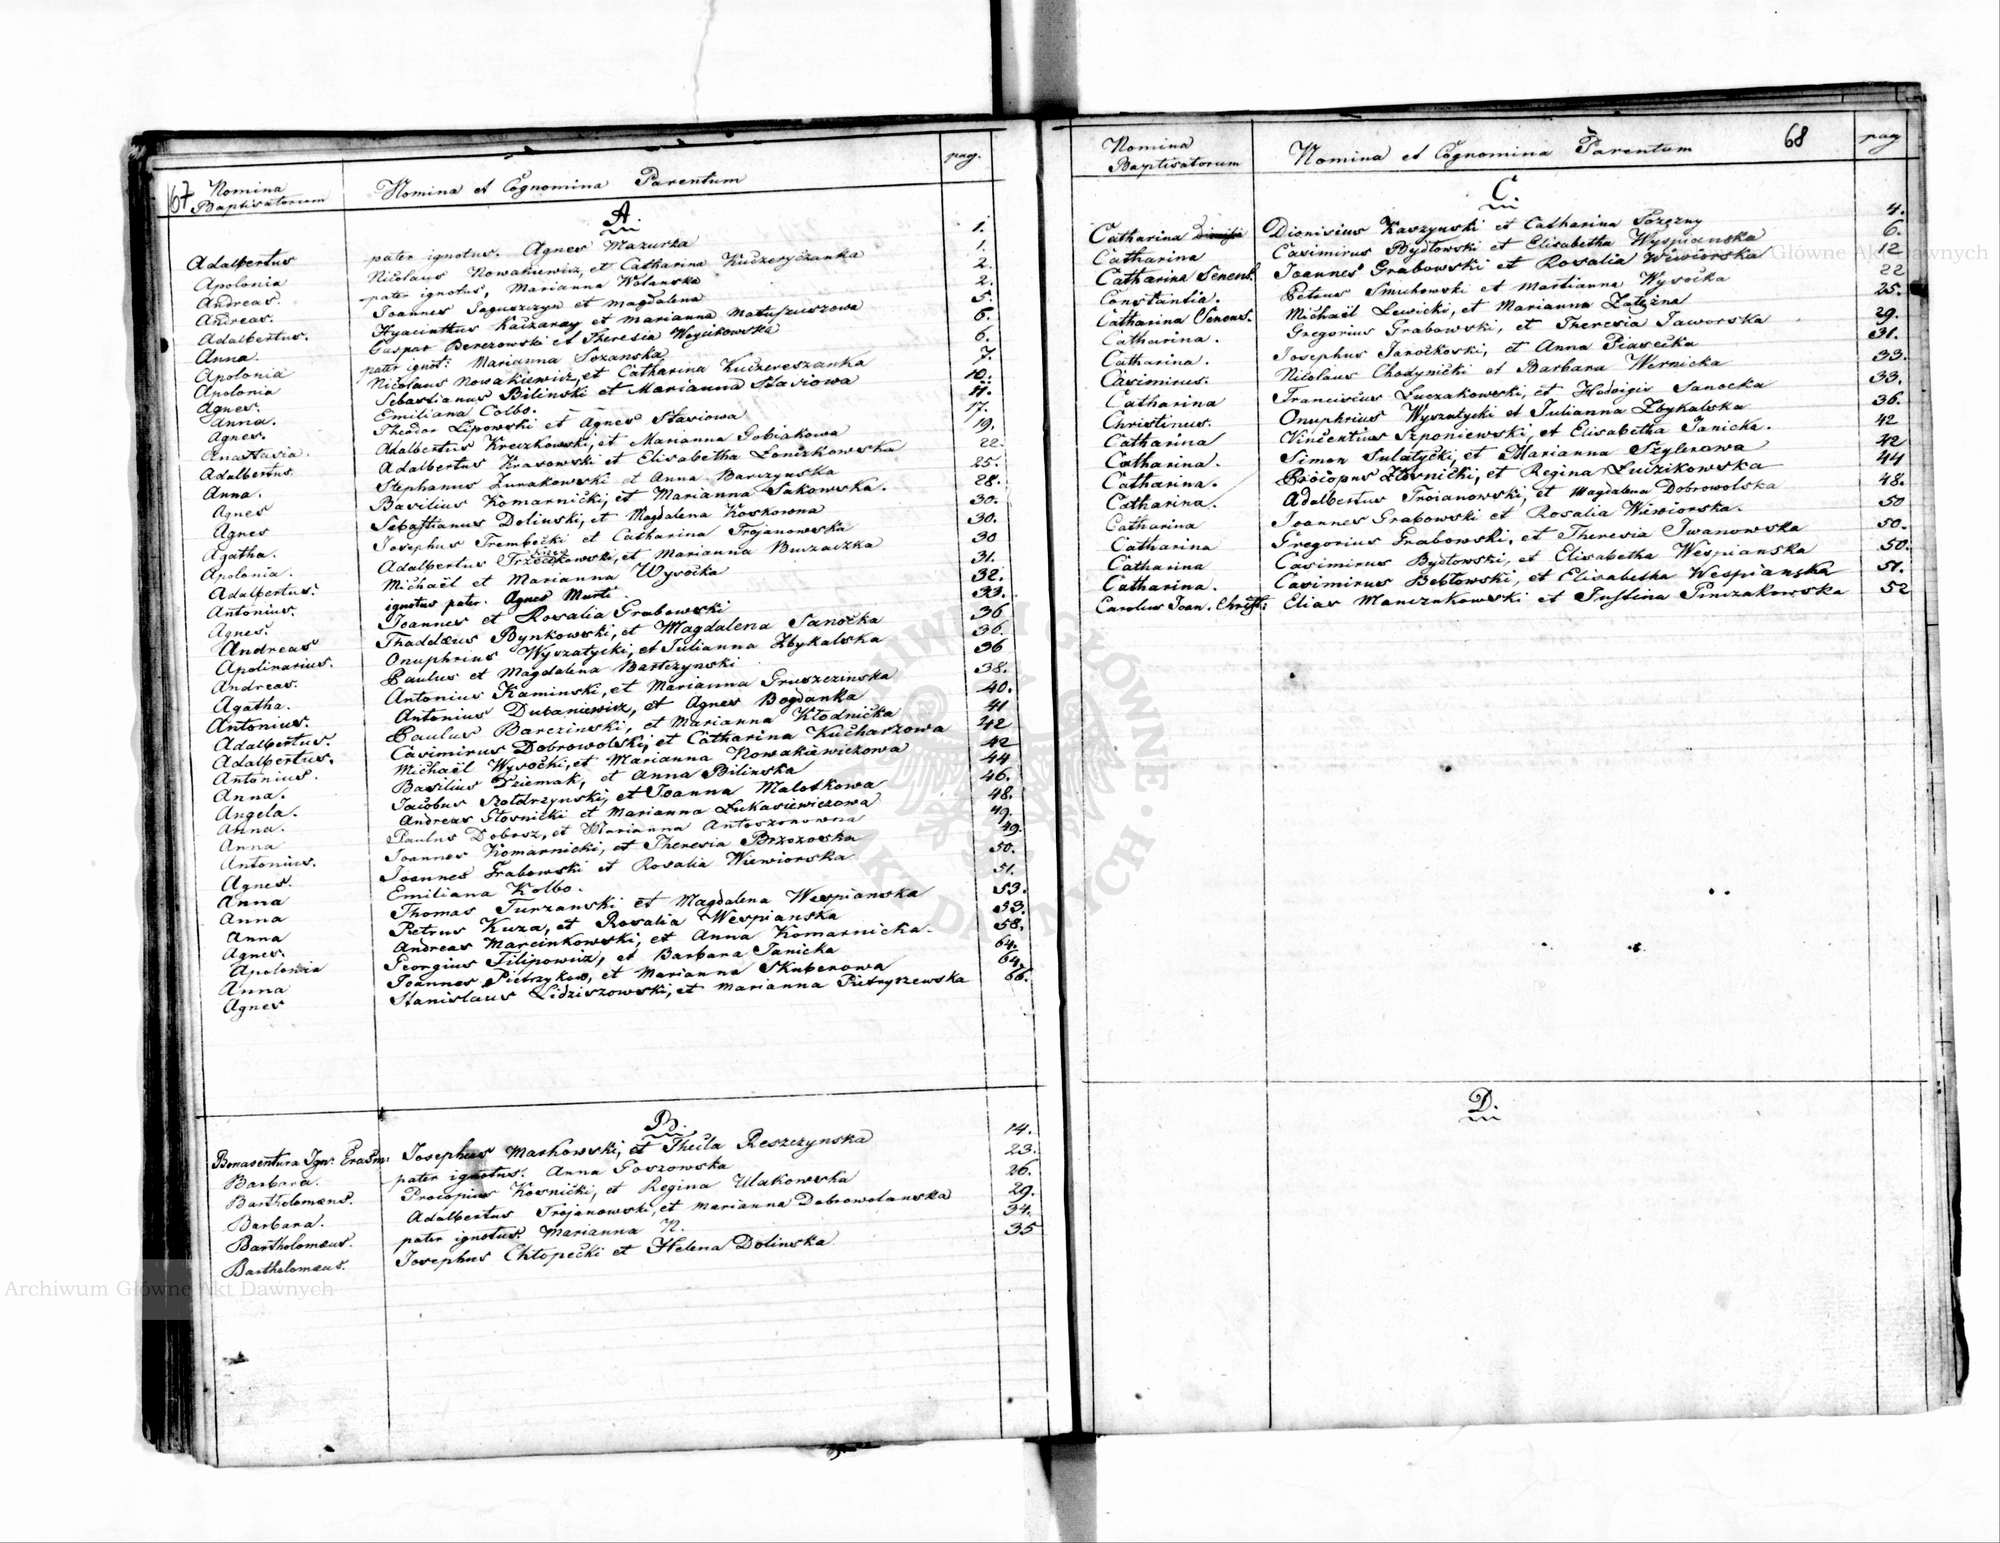 67 Nomina Baptisatorum Nomina et Cognomina Parentum pag.
A.
Adalbertus pater ignotus. Agnes Mazurka 1.
Apolonia Nicolaus Nowakiewicz, et Catharina Kuczeryczanka 1.
Andreas. pater ignotus, Marianna Wolanska 2.
Andreas. Joannes et Magdalena 2.
Adalbertus. Hyacinthus et Marianna Matuszuszowa 5.
Anna. Caspar Berezowski et Theresia Woycikowska 6.
Apolonia pater ignot: Marianna Sozanska 6.
Apolonia Nicolaus Nowakiewicz, et Catharina Kuczereszanka 7.
Agnes. Sebastianus Bilinski et Marianna Stasiowa 10.
Anna. Emiliana Colbo. 11.
Agnes. Theodor Lipowski et Agnes Stasiowa 17.
Anastasia. Adalbertus Kreczkowski, et Marianna Gobiakowa 19.
Adalbertus. Adalbertus Krasowski et Elisabetha Lonczkowska 22.
Anna. Stephanus Zurakowski et Anna Barczynska 25.
Agnes Basilius Komarnicki, et Marianna Sakowska. 28.
Agnes Sebastianus Dolinski, et Magdalena Koskowna 30.
Agatha. Josephus Trembecki et Catharina Trojanowska 30.
Apolonia. Adalbertus et Marianna Buszaczka 30
Adalbertus. Michaël et Marianna Wysocka 31.
Antonius. ignotus pater. Agnes Marti 32.
Agnes. Joannes et Rosalia Grabowski 33.
Andreas Thaddæus Bynkowski, et Magdalena Sanocka 36
Apolinarius. Onuphrius Wyszatycki, et Julianna Zbykalska 36.
Andreas. Paulus et Magdalena Bartczynski 36
Agatha. Antonius Kaminski, et Marianna Gruszczinska 38.
Antonius. Antonius Dubaniewicz, et Agnes Bogdanka 40.
Adalbertus. Paulus Barczinski, et Marianna Kłodnicka 41
Adalbertus. Casimirus Dobrowolski, et Catharina Kucharzowa 42
Antonius. Michaël Wysocki, et Marianna Nowakiewiczowa 42
Anna. Basilius Dziemak, et Anna Bilinska 44
Angela. Jacobus Szołdrzynski, et Joanna Malotkowa 46.
Anna. Andreas Słosnicki et Marianna Łukasiewiczowa 48.
Anna Paulus Dobosz, et Marianna Antoszonowna 49.
Antonius. Joannes Komarnicki, et Theresia Brzozowska 49.
Agnes. Joannes Grabowski et Rosalia Wiewiorska 50.
Anna Emiliana Kolbo. 51.
Anna Thomas Turzanski et Magdalena Wespianska 53.
Anna Petrus Kuza, et Rosalia Wespianska 53.
Agnes. Andreas Marcinkowski, et Anna Komarnicka. 58.
Apolonia Georgius Filipowicz, et Barbara Janicka 64.
Anna Joannes Pietrzykow, et Marianna Skuberowa 64
Agnes Stanislaus Lidziszowski, et Marianna Pietryszewska 66.
B.
Bonaventura Ign: Erasm: Josephus Markowski, et Thecla Reszczynska 14.
Barbara. pater ignotus. Anna Goszowska 23.
Bartholomæus. Procopius Kosnicki, et Regina Ulakowska 26.
Barbara. Adalbertus Trojanowski, et Marianna Dobrowolanska 29.
Bartholomæus. pater ignotus. Marianna N. 34.
Bartholomæus. Josephus Chłopecki et Helena Dolinska 35
Nomina Baptisatorum Nomina et Cognomina Parentum 68 pag
C.
Catharina Dionisius Kaszynski et Catharina Pozezny 4.
Catharina Casimirus Bydłowski et Elisabetha Wyspianska 6.
Catharina Senens. Joannes Grabowski et Rosalia Wiwiorska 12
Constantia. Petrus Smuhowski et Martianna Wysocka 22
Catharina Senens. Michaël Lewicki, et Marianna Załezna 25.
Catharina. Gregorius Grabowski, et Theresia Jaworska 29.
Catharina. Josephus Jarockoski, et Anna Piasecka 31.
Casimirus. Nicolaus Chodynicki et Barbara Wernicka 33.
Catharina Franciscus Luczakowski, et Hedvigis Sanocka 33.
Christinus. Onuphrius Wyszatycki et Julianna Zbykalska 36.
Catharina Vincentius Szponiewski, et Elisabetha Janicka. 42
Catharina. Simon Sulatycki, et Marianna Szylerowa 42
Catharina. Procopus Złosnicki, et Regina Ludzikowska 44
Catharina. Adalbertus Troianowski, et Magdalena Dobrowolska 48.
Catharina Joannes Grabowski et Rosalia Wiwiorska. 50
Catharina Gregorius Grabowski, et Theresia Iwanowska 50.
Catharina Casimirus Bydłowski, et Elisabetha Wespianska 50.
Catharina. Casimirus Bebłowski, et Elisabetha Wespianska 51.
Carolus Joan. Christ: Elias Manczukowski et Justina Pinczakowska 52
D.
Archiwum Główne Akt Dawnych